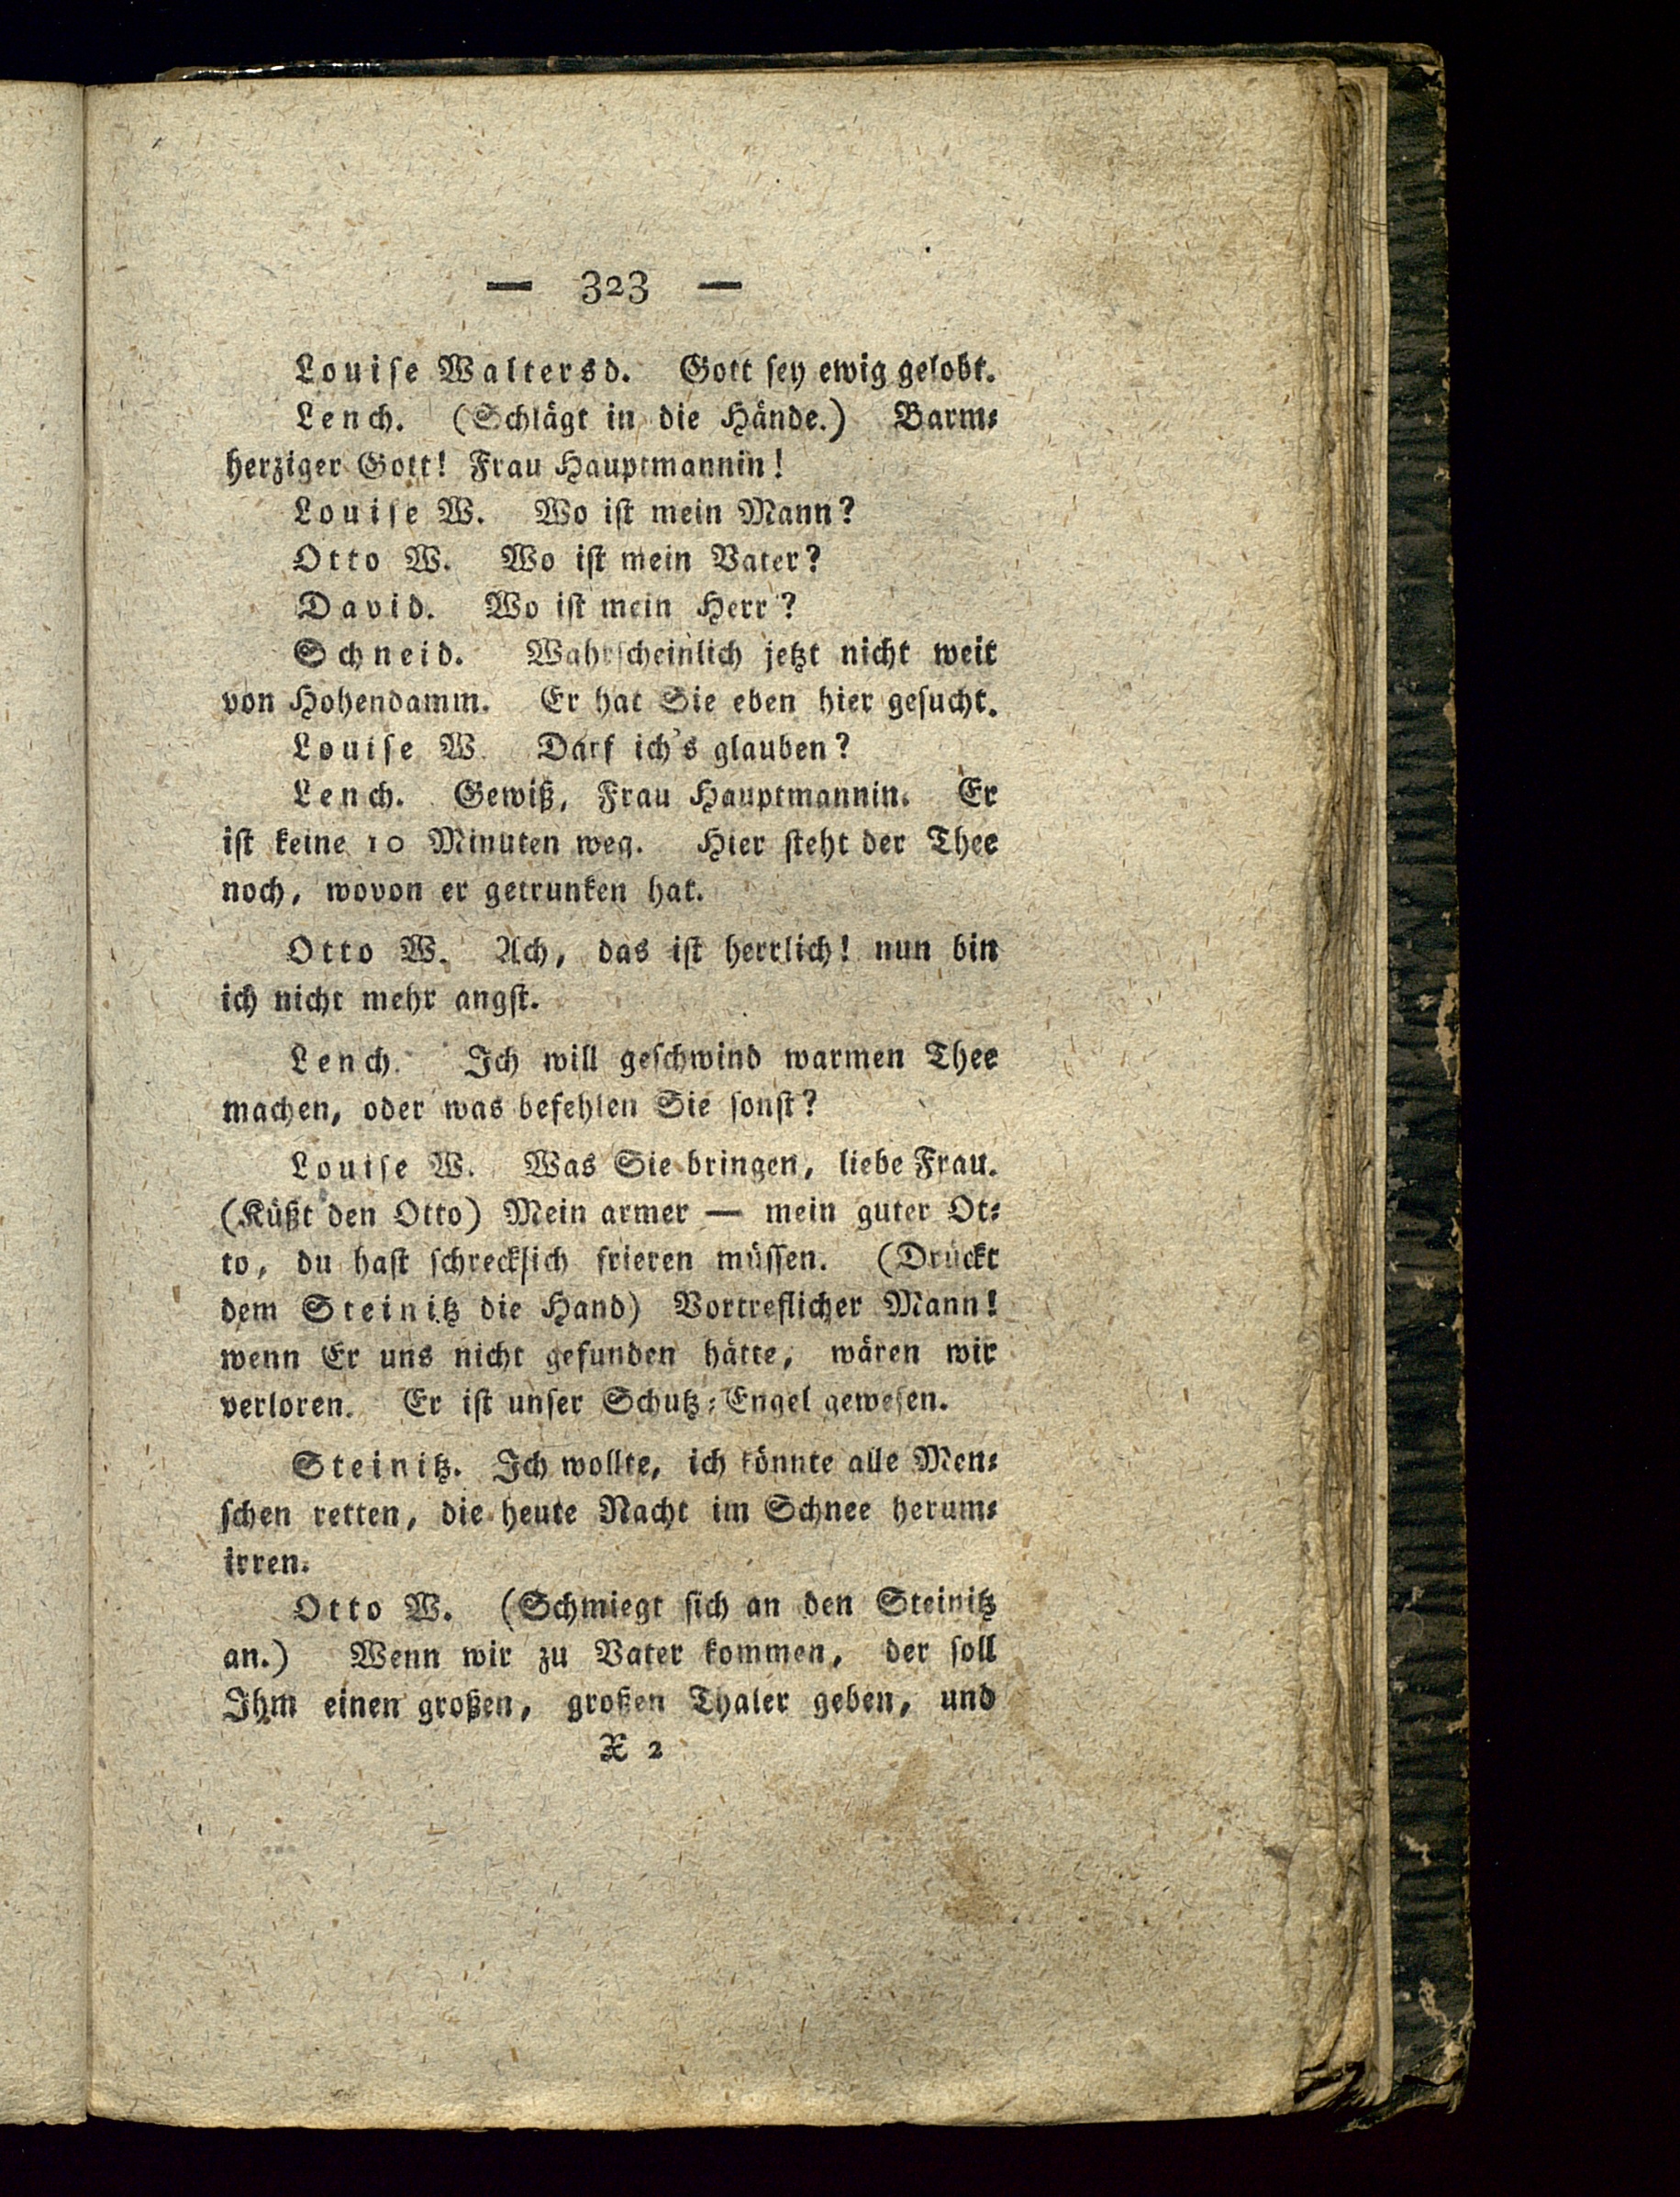 — 323 —
Louiſe Waltersd. Gott ſey ewig gelobt.
Lench. (Schlägt in die Hände.) Barm⸗
herziger Gott! Frau Hauptmannin!
Louiſe W. Wo iſt mein Mann?
Otto W. Wo iſt mein Vater?
David. Wo iſt mein Herr?
Schneid. Wahrſcheinlich jetzt nicht weit
von Hohendamm. Er hat Sie eben hier geſucht.
Louiſe W. Darf ich's glauben?
Lench. Gewiß, Frau Hauptmannin. Er
iſt keine 10 Minuten weg. Hier ſteht der Thee
noch, wovon er getrunken hat.
Otto W. Ach, das iſt herrlich! nun bin
ich nicht mehr angſt.
Lench. Ich will geſchwind warmen Thee
machen, oder was befehlen Sie ſonſt?
Louiſe W. Was Sie bringen, liebe Frau.
(Küßt den Otto) Mein armer — mein guter Ot⸗
to, du haſt ſchrecklich frieren müſſen. (Drückt
dem Steinitz die Hand) Vortreflicher Mann!
wenn Er uns nicht gefunden hätte, wären wir
verloren. Er iſt unſer Schutz⸗Engel geweſen.
Steinitz. Ich wollte, ich könnte alle Men⸗
ſchen retten, die heute Nacht im Schnee herum⸗
irren.
Otto W. (Schmiegt ſich an den Steinitz
an.) Wenn wir zu Vater kommen, der ſoll
Ihm einen großen, großen Thaler geben, und
X 2